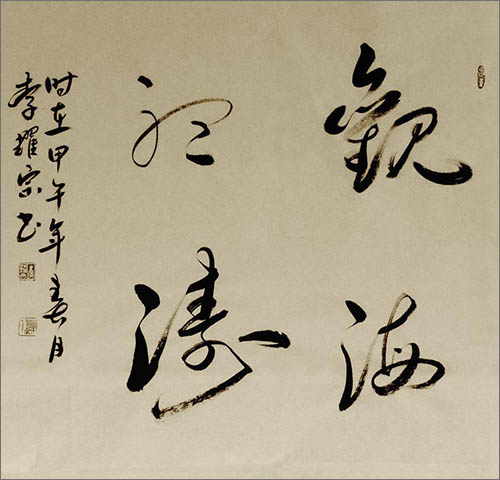 觀海
聽濤
时在甲午年春月
李耀宗书